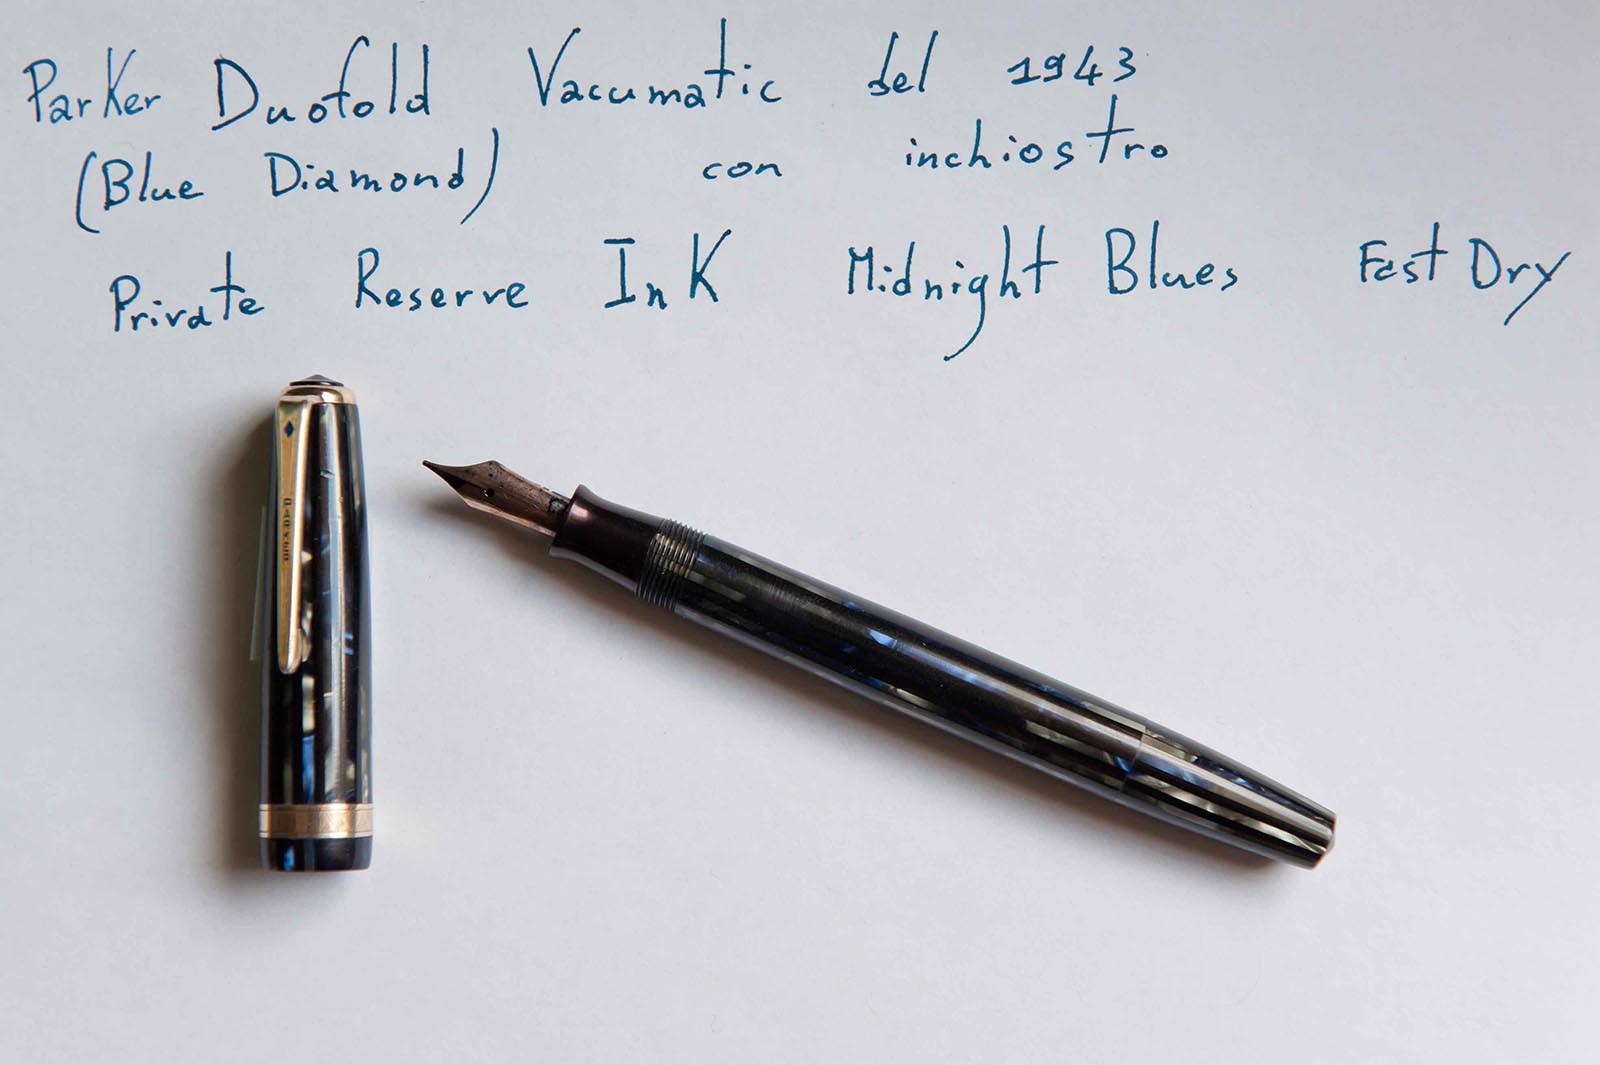 Parker Duofold Vacumatic del 1943
(Blue Diamond) con inchiostro
Private Reserve Ink Midnight Blues Fast Dry
PARKER